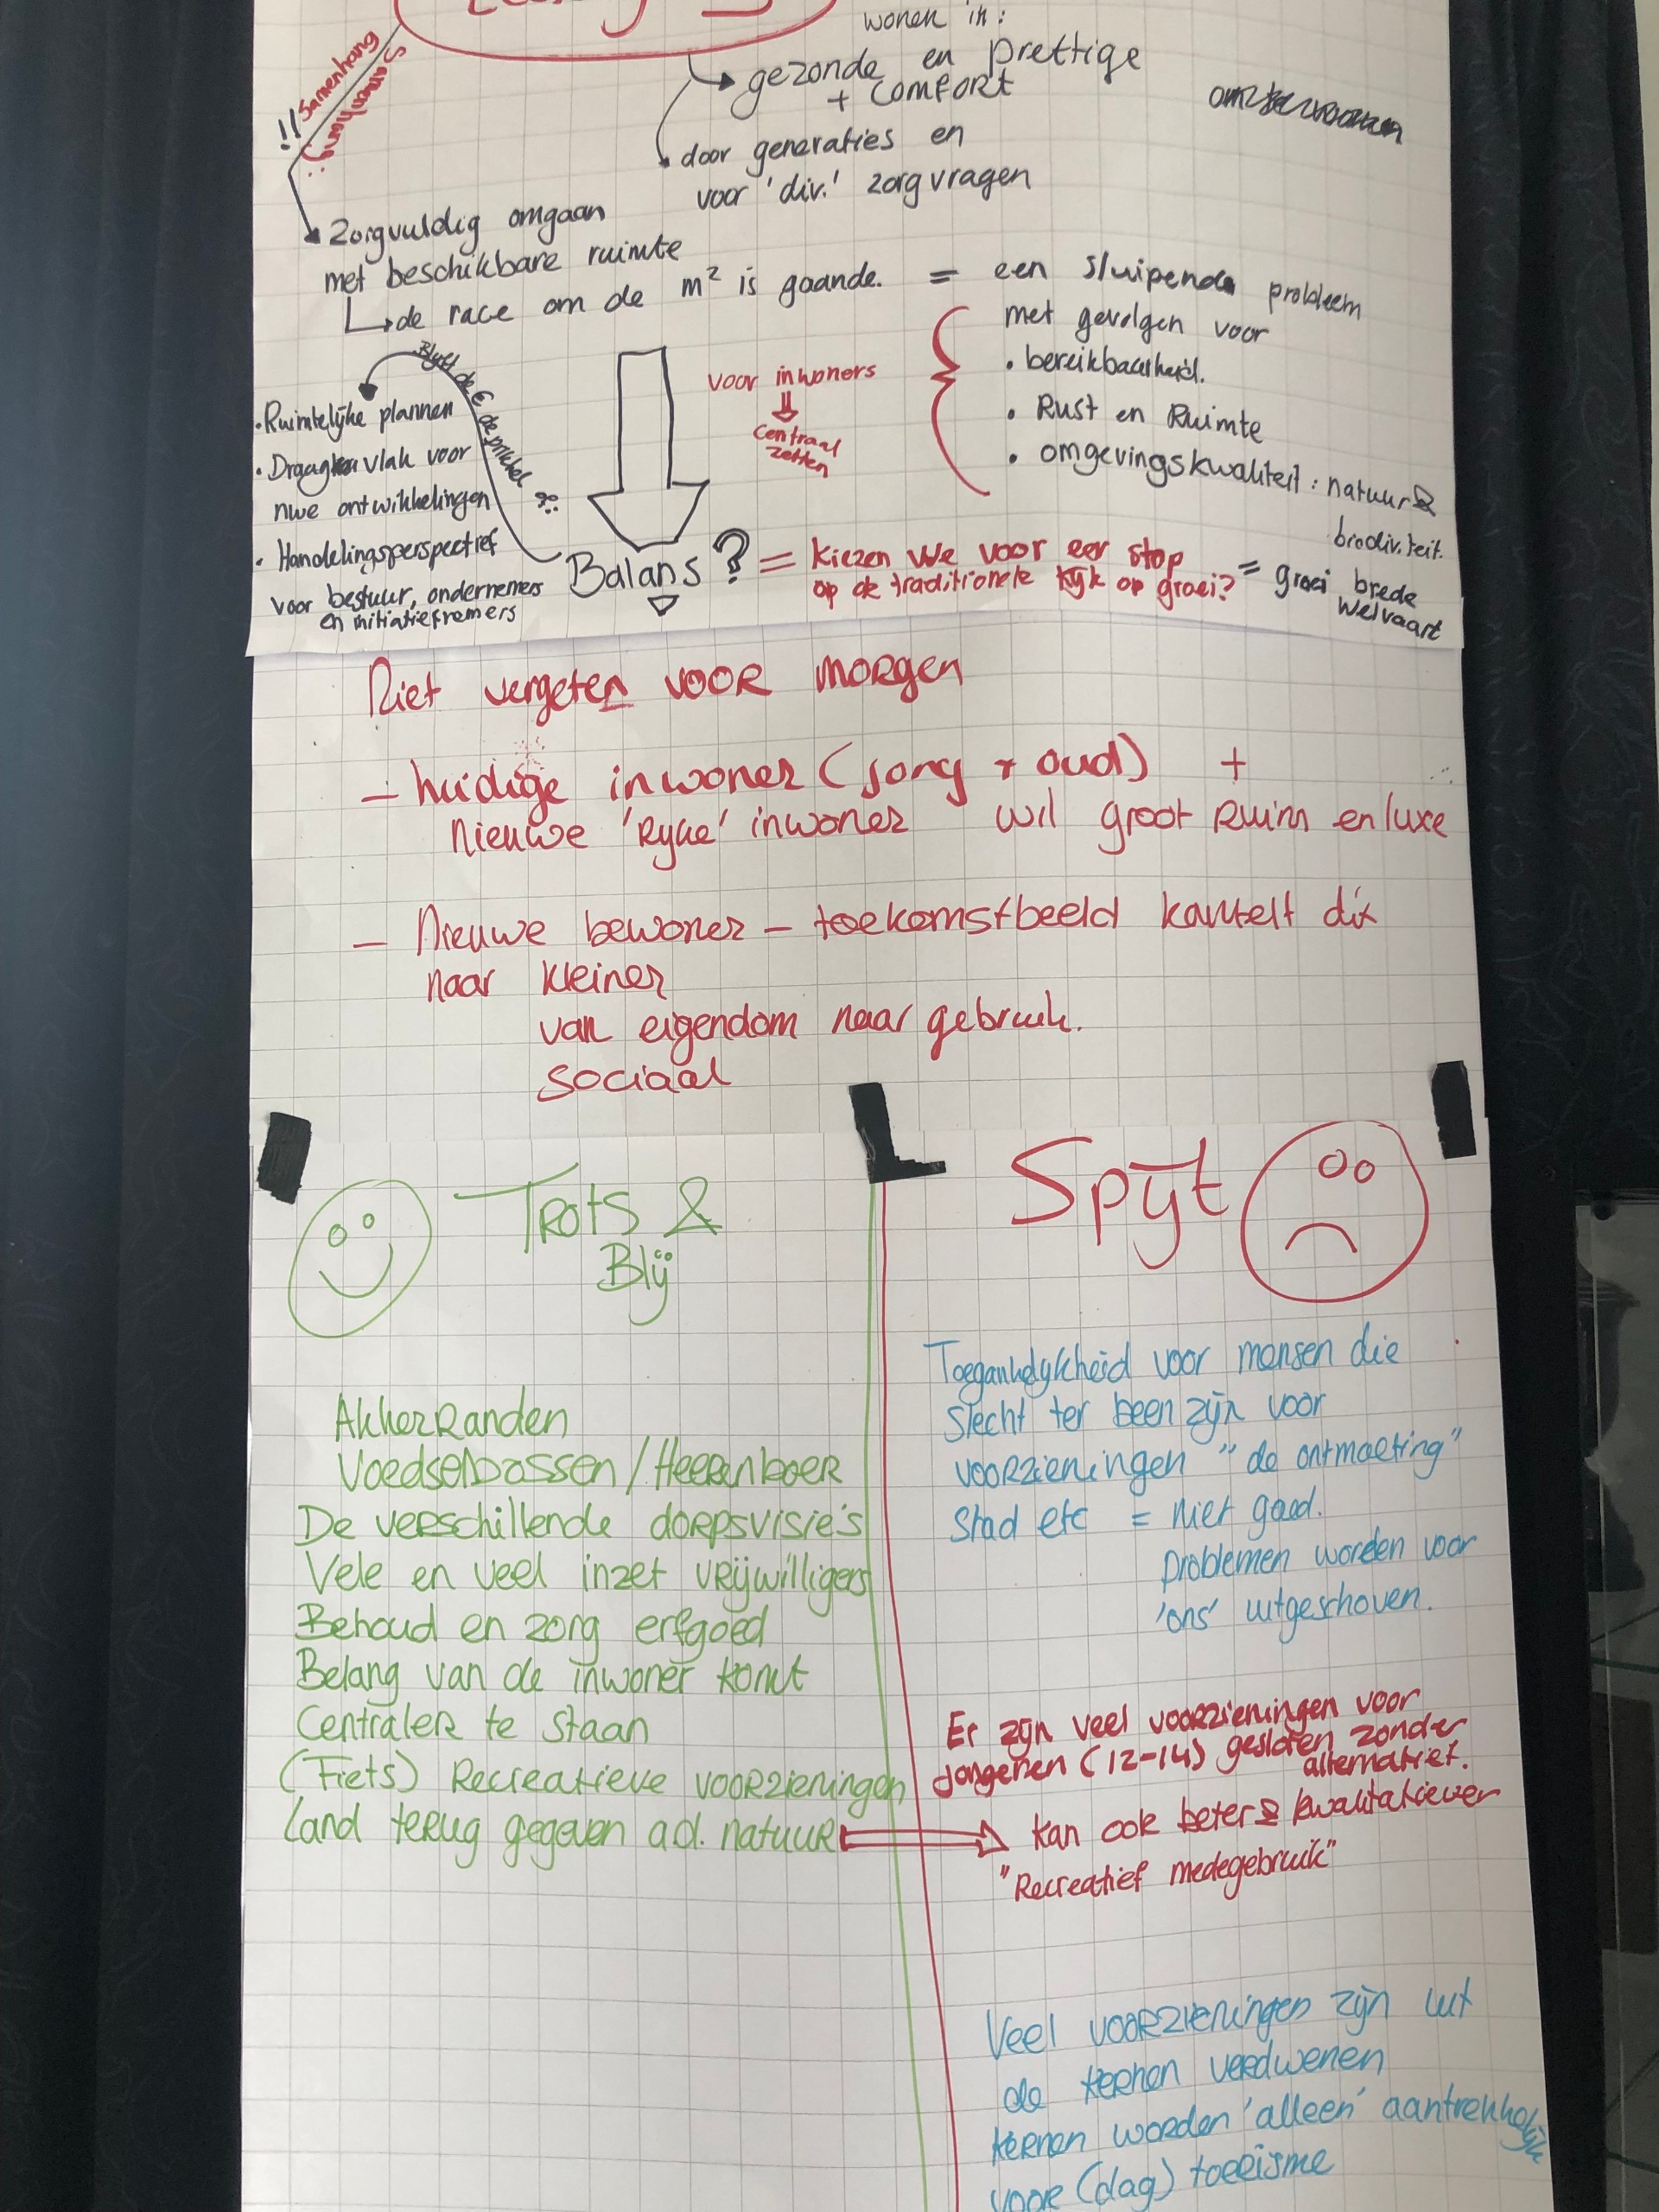 wonen in:
gezonde en prettige
+ comfort
!! Samenhang
Samenhang
door generaties en
voor 'div.' zorgvragen
Zorgvuldig omgaan
met beschikbare ruimte
de race om de m² is gaande. = een sluipende probleem
met gevolgen voor
• bereikbaarheid.
• Rust en Ruimte
• omgevingskwaliteit: natuur &
biodiv.teit.
voor inwoners
centraal
zetten
Blijft de € de prikkel
• Ruimtelijke plannen
• Draagvlak voor
nwe ontwikkelingen
• Handelingsperspectief
voor bestuur, ondernemers
en initiatiefnemers
Balans? = kiezen we voor een stop
op de traditionele kijk op groei? = groei brede
welvaart
Niet vergeten voor morgen
– huidige inwoner (jong + oud) +
nieuwe 'rijke' inwoner wil groot ruim en luxe
– Nieuwe bewoner – toekomstbeeld kantelt dit
naar kleiner
van eigendom naar gebruik.
sociaal
Trots &
Blij
Akkerranden
Voedselbossen/Heerenboer
De verschillende dorpsvisie's
Vele en veel inzet vrijwilligers
Behoud en zorg erfgoed
Belang van de inwoner komt
Centraler te staan
(Fiets) Recreatieve voorzieningen
Land terug gegeven a.d. natuur
Spijt
Toegankelijkheid voor mensen die
slecht ter been zijn voor
voorzieningen "de ontmoeting"
stad etc = niet goed.
problemen worden voor
'ons' uitgeschoven.
Er zijn veel voorzieningen voor
Jongeren (12-14) gesloten zonder
alternatief.
kan ook beter & kwalitatiever
"Recreatief medegebruik"
Veel voorzieningen zijn uit
de kernen verdwenen
kernen worden 'alleen' aantrekkelijk
voor (dag) toerisme